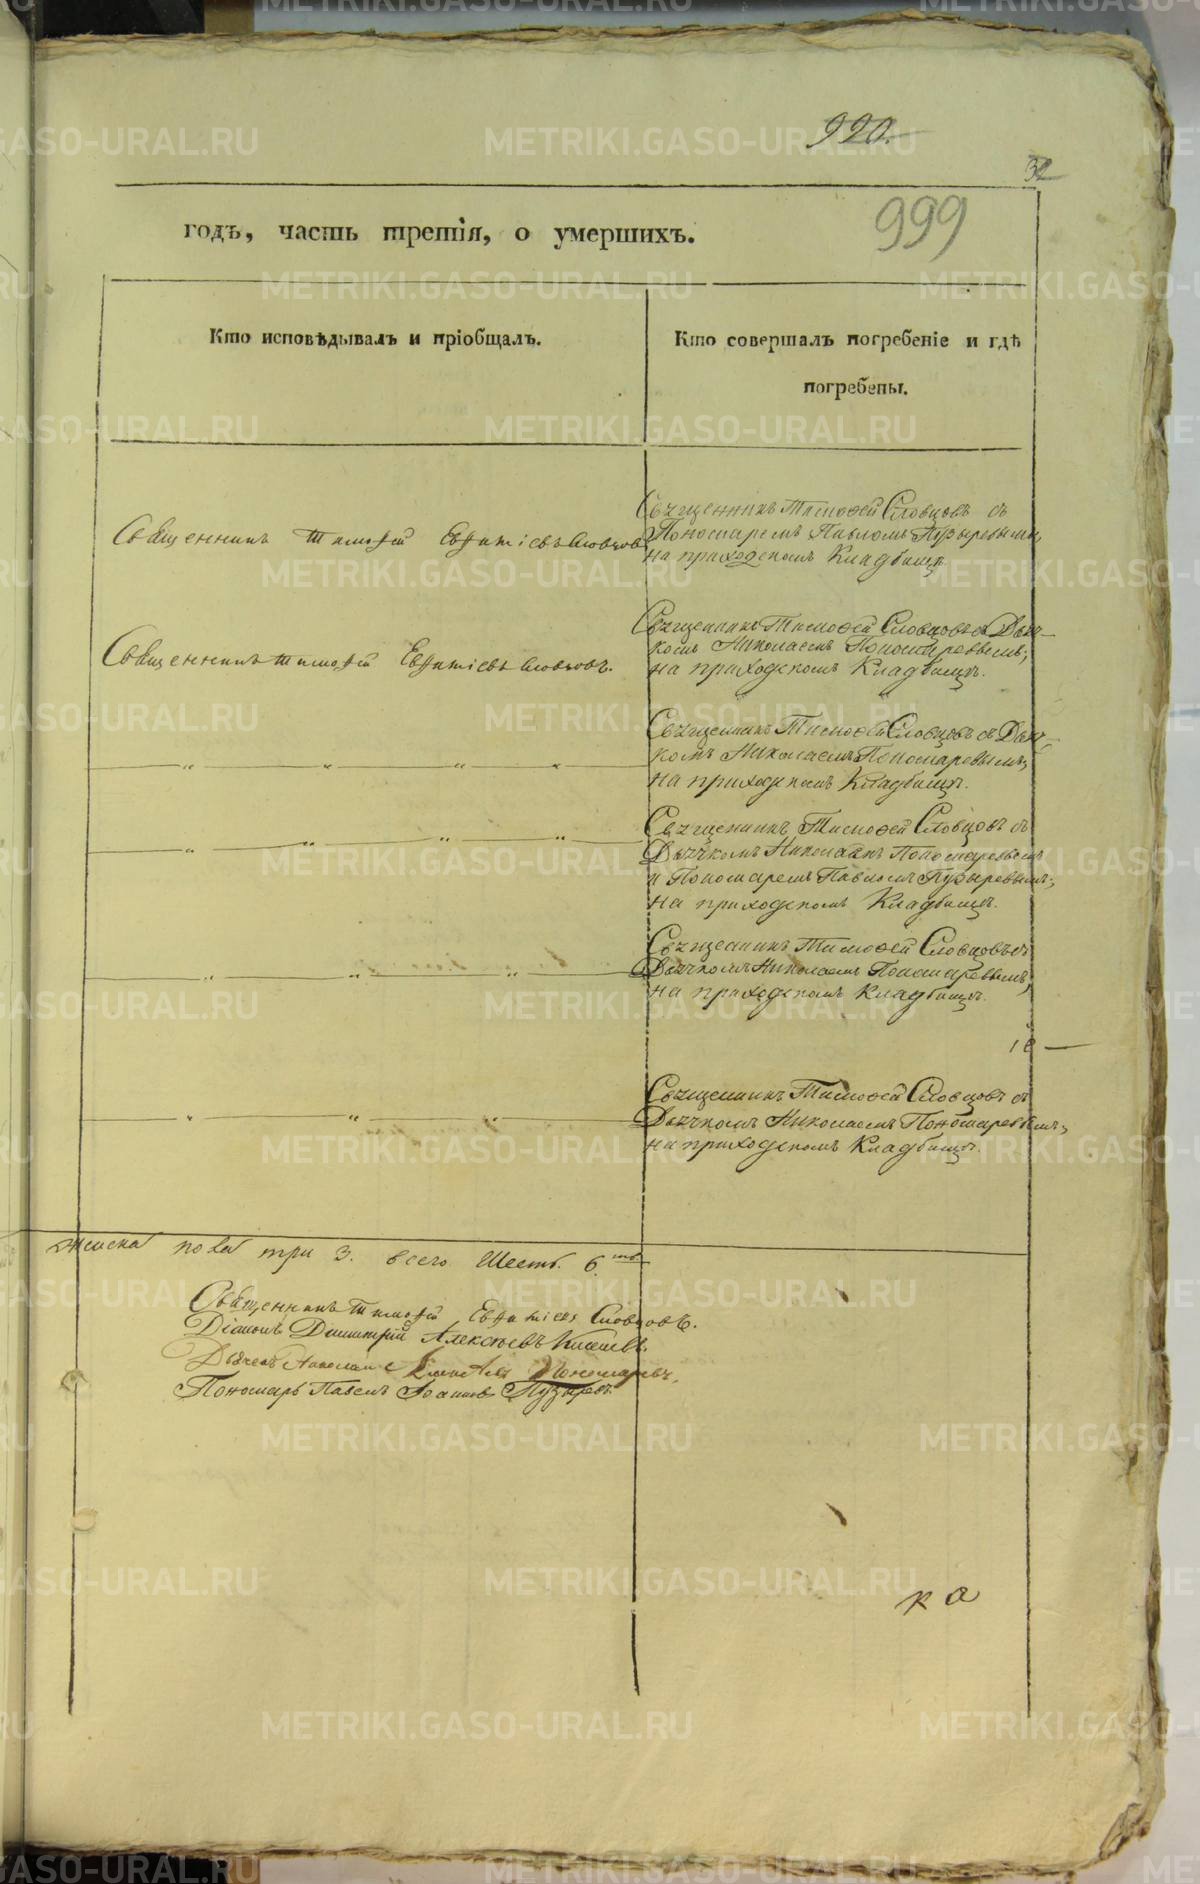 990.
32
999
годъ, часть третія, о умершихъ.
Кто исповѣдывалъ и пріобщалъ.
Кто совершалъ погребеніе и гдѣ
погребены.
Священникъ Тимофей Евфиміевъ Словцовъ
Священникъ Тимофей Словцовъ съ
Пономаремъ Павломъ Пузыревымъ,
на приходскомъ Кладбищѣ.
Священникъ Тимофей Евфиміевъ Словцовъ.
Священникъ Тимофей Словцовъ съ Дьяч-
комъ Николаемъ Пономаревымъ,
на приходскомъ Кладбищѣ.
Священникъ Тимофей Словцовъ съ Дьяч-
комъ Николаемъ Пономаревымъ,
на приходскомъ Кладбищѣ.
Священникъ Тимофей Словцовъ съ
Дьячкомъ Николаемъ Пономаревымъ
и Пономаремъ Павломъ Пузыревымъ,
на приходскомъ Кладбищѣ.
Священникъ Тимофей Словцовъ съ
Дьячкомъ Николаемъ Пономаревымъ,
на приходскомъ Кладбищѣ.
Священникъ Тимофей Словцовъ съ
Дьячкомъ Николаемъ Пономаревымъ,
на приходскомъ Кладбищѣ.
женска пола три 3. всего Шесть. 6.
Священникъ Тимофей Евфиміевъ Словцовъ.
Діаконъ Димитрій Алексѣевъ
Дьячекъ Николай Пономаревъ.
Пономарь Павелъ Іоанновъ Пузыревъ.
METRIKI.GASO-URAL.RU